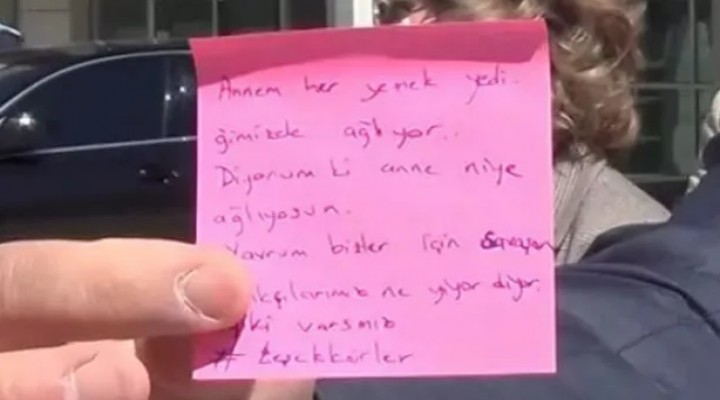 Annem her yemek yedi-
ğimizde ağlıyor..
Diyorum ki anne niye
ağlıyosun.
Yavrum bizler için savaşan
ıkçılarımız ne yiyor diyor.
iki varsınız
# teşekkürler